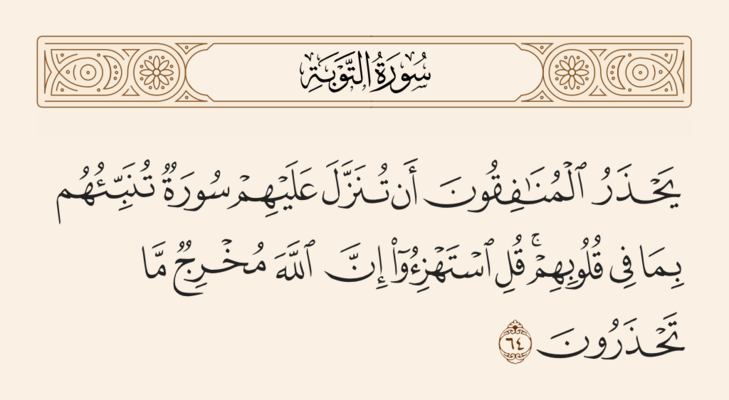 سُورَةُ التَّوْبَةِ
يَحْذَرُ ٱلْمُنَٰفِقُونَ أَن تُنَزَّلَ عَلَيْهِمْ سُورَةٌ تُنَبِّئُهُم
بِمَا فِى قُلُوبِهِمْ ۚ قُلِ ٱسْتَهْزِءُوٓا۟ إِنَّ ٱللَّهَ مُخْرِجٌ مَّا
تَحْذَرُونَ ٦٤